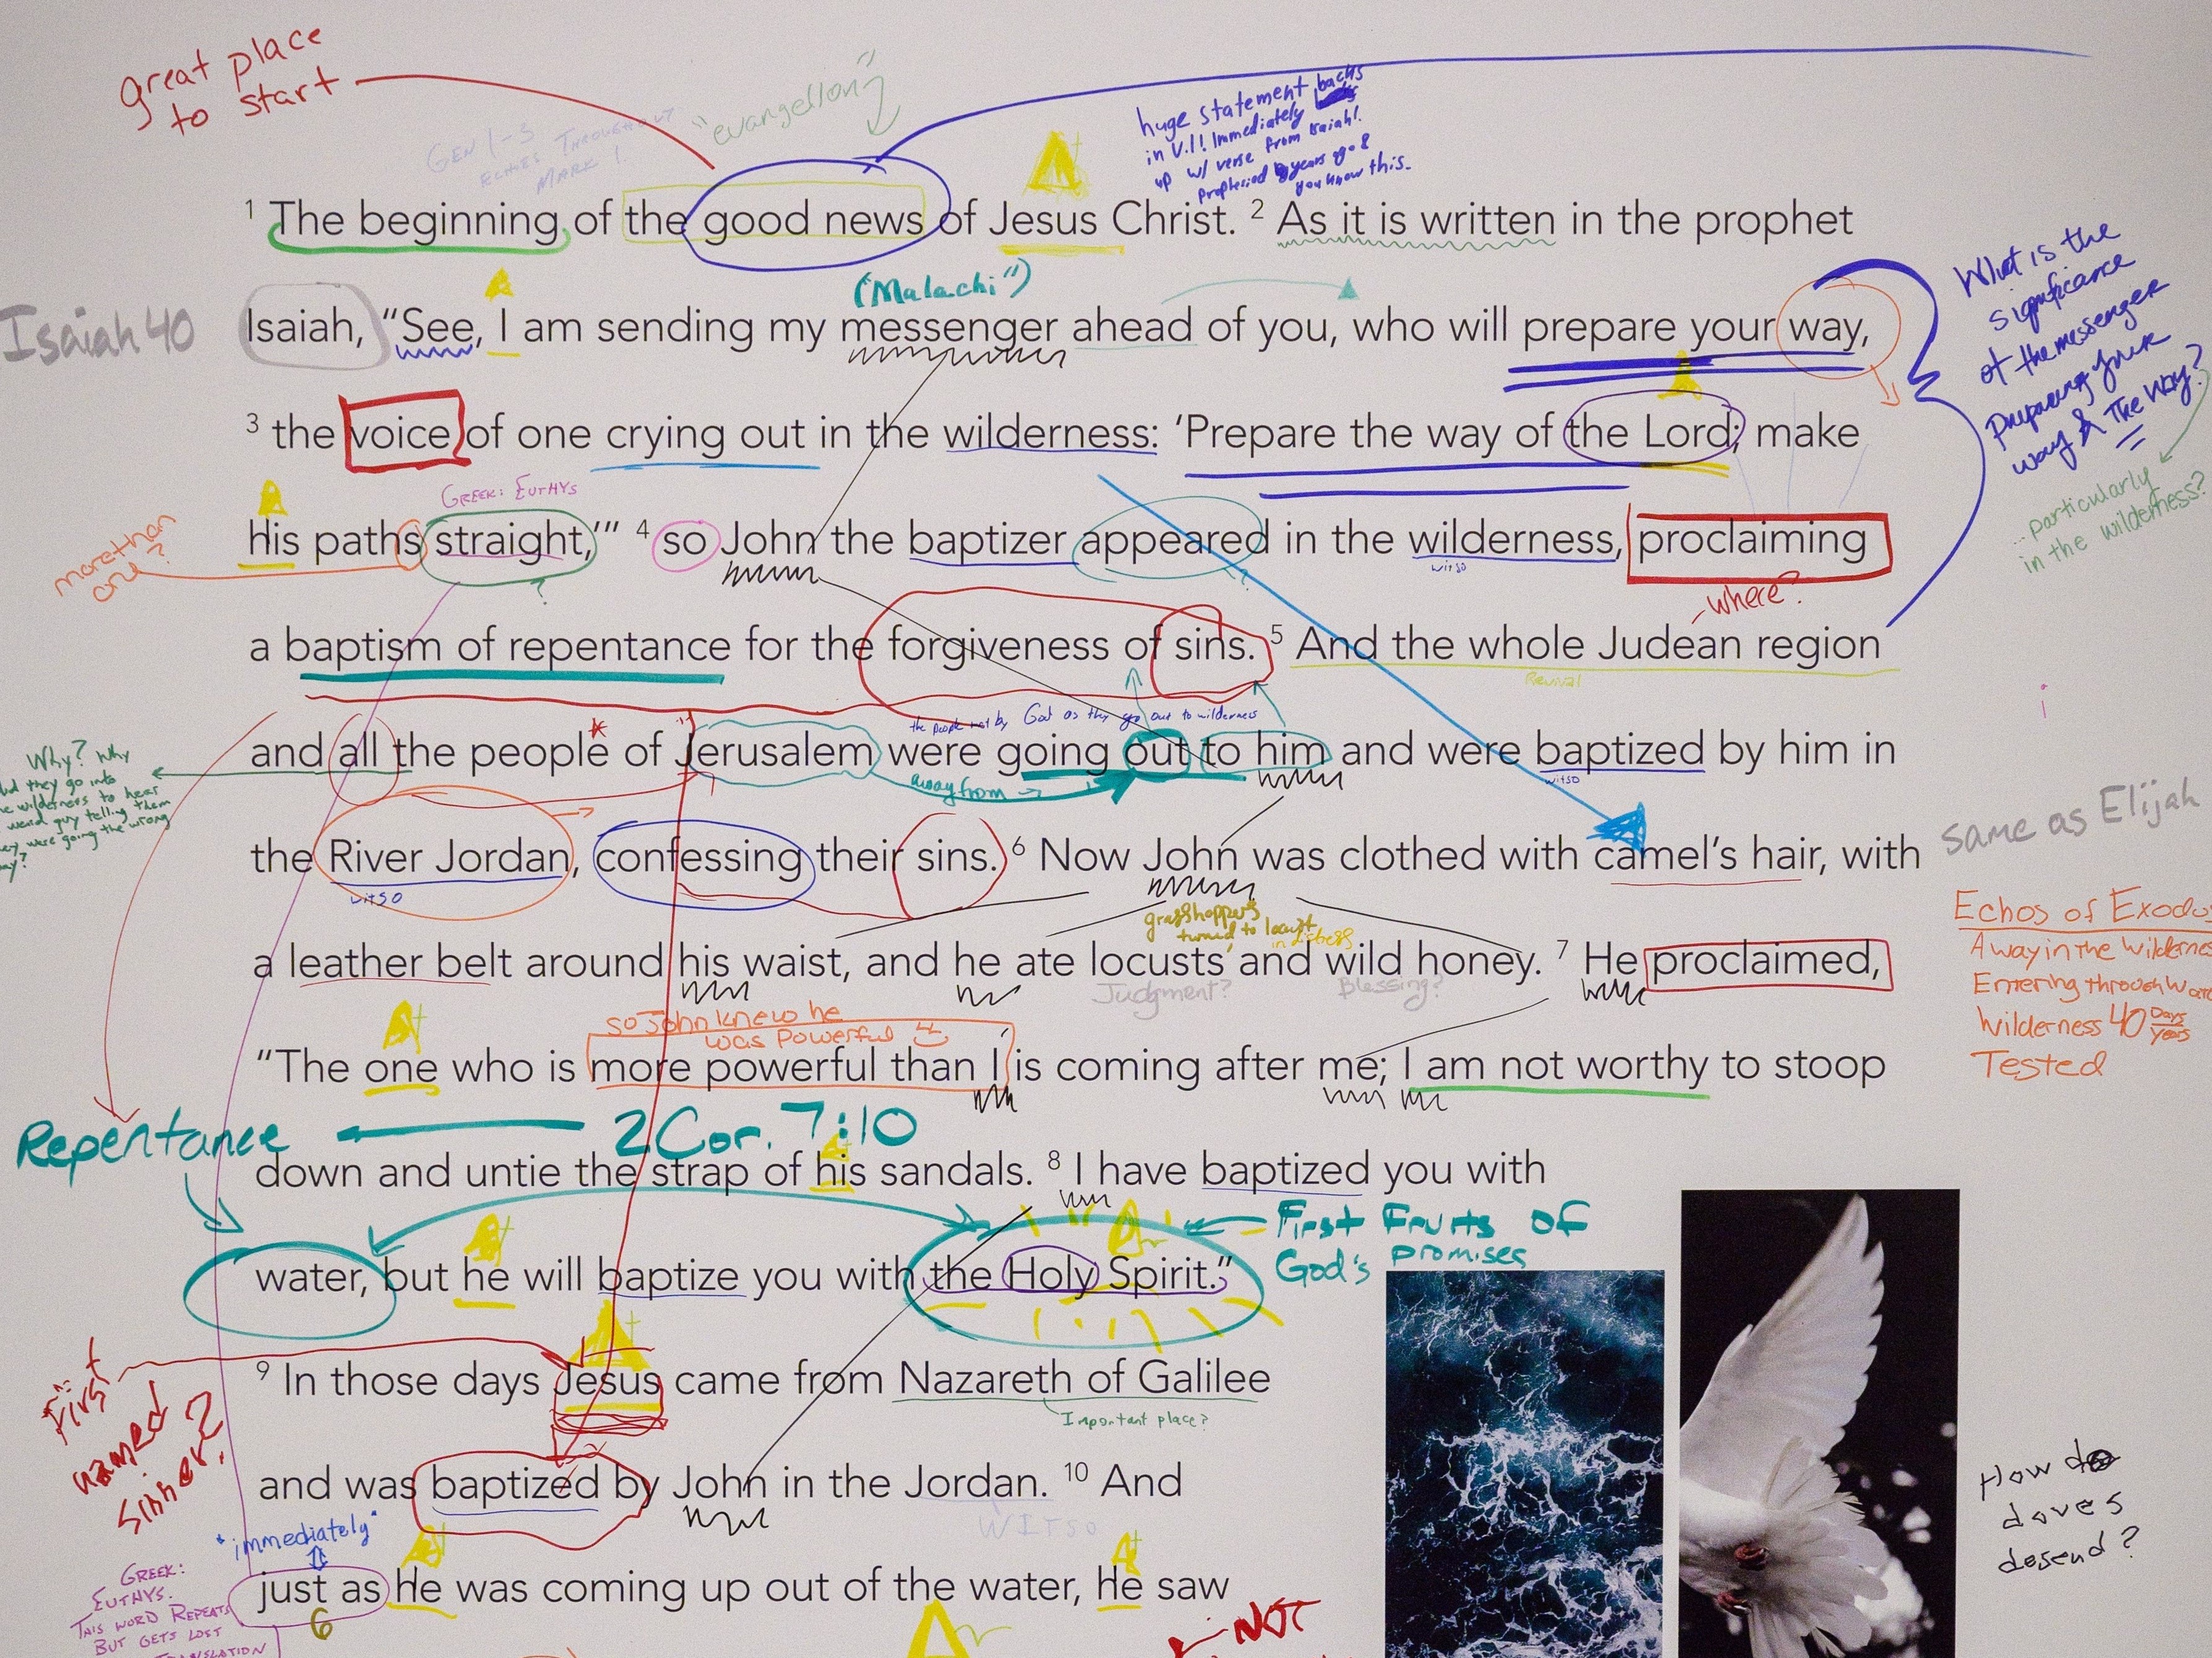 great place
to start
"evangelion"
GEN 1-3
ECHOES THROUGHOUT
MARK 1.
huge statement backs
in v.1! Immediately
up w/ verse from Isaiah!
years ago &
you know this.
1 The beginning of the good news of Jesus Christ. 2 As it is written in the prophet
(Malachi")
Isaiah 40
Isaiah, “See, I am sending my messenger ahead of you, who will prepare your way,
What is the
significance
of the messenger
preparing your
way & The Way?
...particularly
in the wilderness?
3 the voice of one crying out in the wilderness: ‘Prepare the way of the Lord; make
GREEK: EUTHYS
more than
one?
His paths straight,’” 4 so John the baptizer appeared in the wilderness, proclaiming
?
?
witso
where?
a baptism of repentance for the forgiveness of sins. 5 And the whole Judean region
Revival
the people met by God as they go out to wilderness
and all the people* of Jerusalem were going out to him and were baptized by him in
away from
witso
Why? Why
did they go into
the wilderness to hear
weird guy telling them
they were going the wrong
way?
the River Jordan, confessing their sins. 6 Now John was clothed with camel’s hair, with
witso
same as Elijah
grasshoppers
turned to locust
in distress
a leather belt around his waist, and he ate locusts and wild honey. 7 He proclaimed,
Judgment?
Blessing?
Echos of Exodus
A way in the Wilderness
Entering through Water
Wilderness 40 Days
Years
Tested
so John knew he
was Powerful
“The one who is more powerful than I is coming after me; I am not worthy to stoop
Repentance
2 Cor. 7:10
down and untie the strap of his sandals. 8 I have baptized you with
First Fruits of
God's promises
water, but he will baptize you with the Holy Spirit.”
9 In those days Jesus came from Nazareth of Galilee
Important place?
First
named
sinner?
and was baptized by John in the Jordan. 10 And
WITSO
"immediately"
just as He was coming up out of the water, He saw
6
GREEK:
EUTHYS.
THIS WORD REPEATS
BUT GETS LOST
TRANSLATION
NOT
How do
doves
desend?